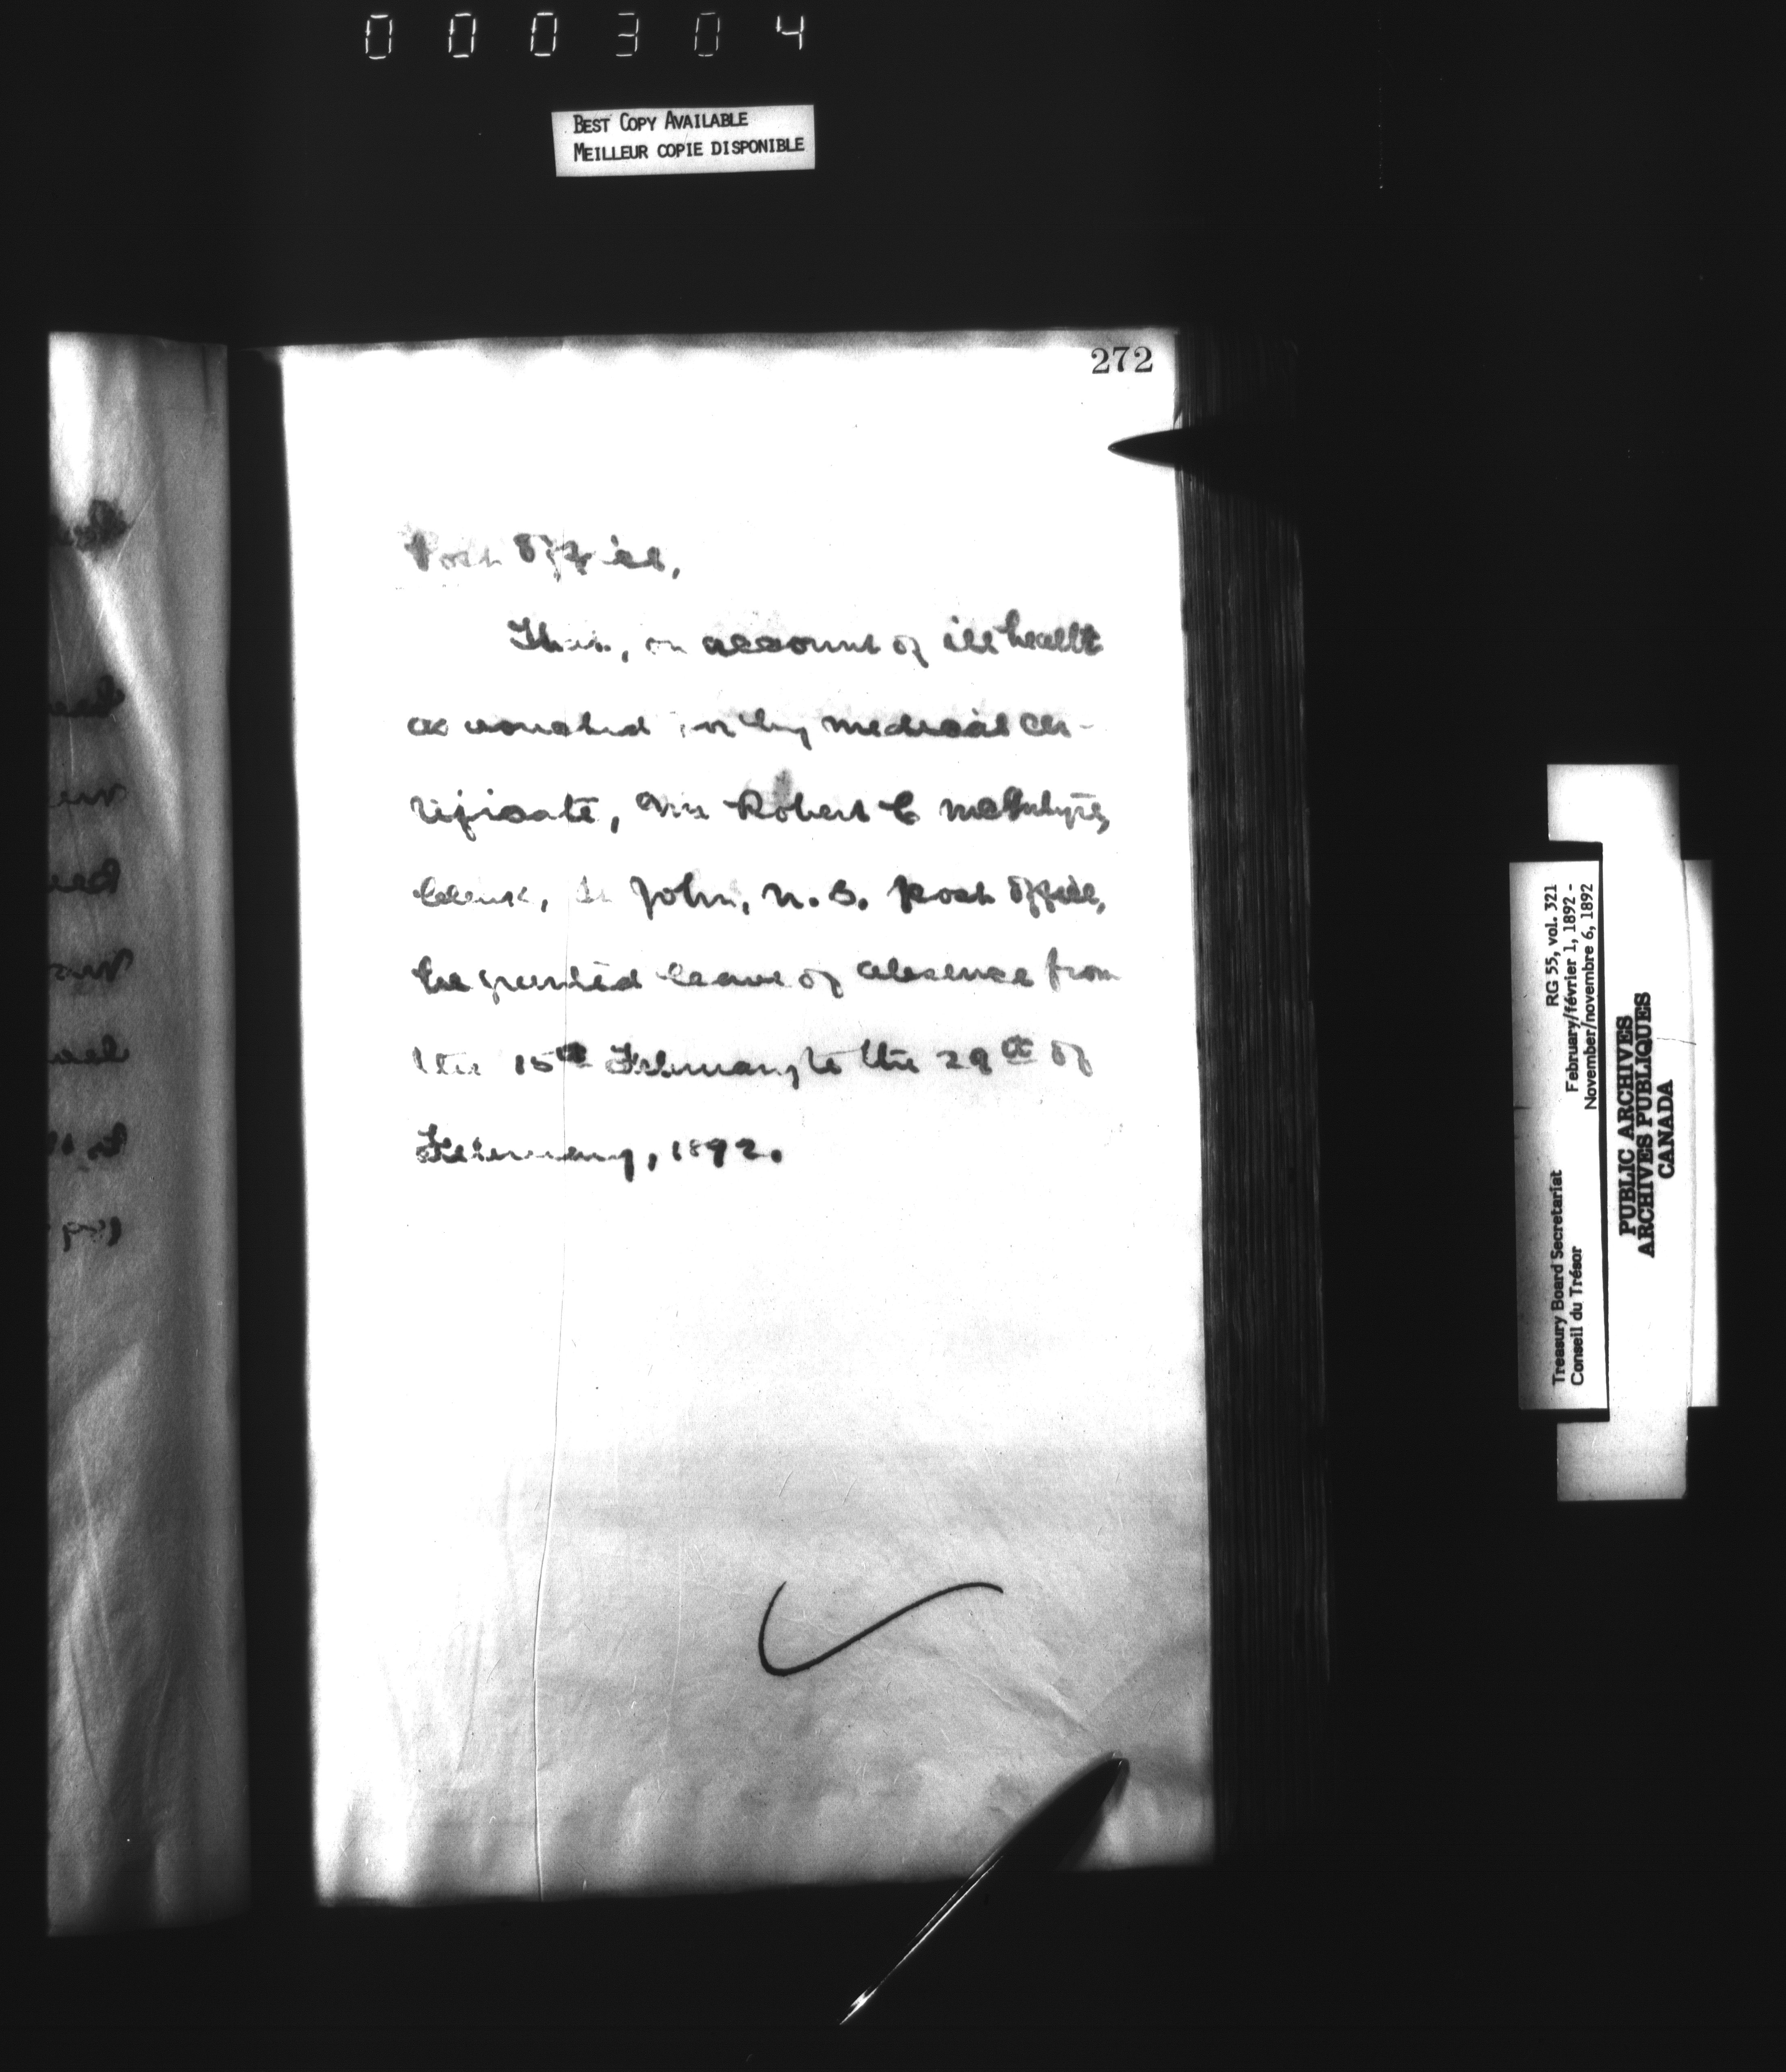 000304
BEST COPY AVAILABLE
MEILLEUR COPIE DISPONIBLE
272
Post Office,
That, on account of ill health
as vouched for by medical cer-
tificate, Mr Robert C McIntyre,
Clerk, St John, N.B. Post Office,
be granted leave of absence from
the 15th February to the 29th of
February, 1892.
Treasury Board Secretariat RG 55, vol. 321
Conseil du Trésor February/février 1, 1892 -
November/novembre 6, 1892
PUBLIC ARCHIVES
ARCHIVES PUBLIQUES
CANADA